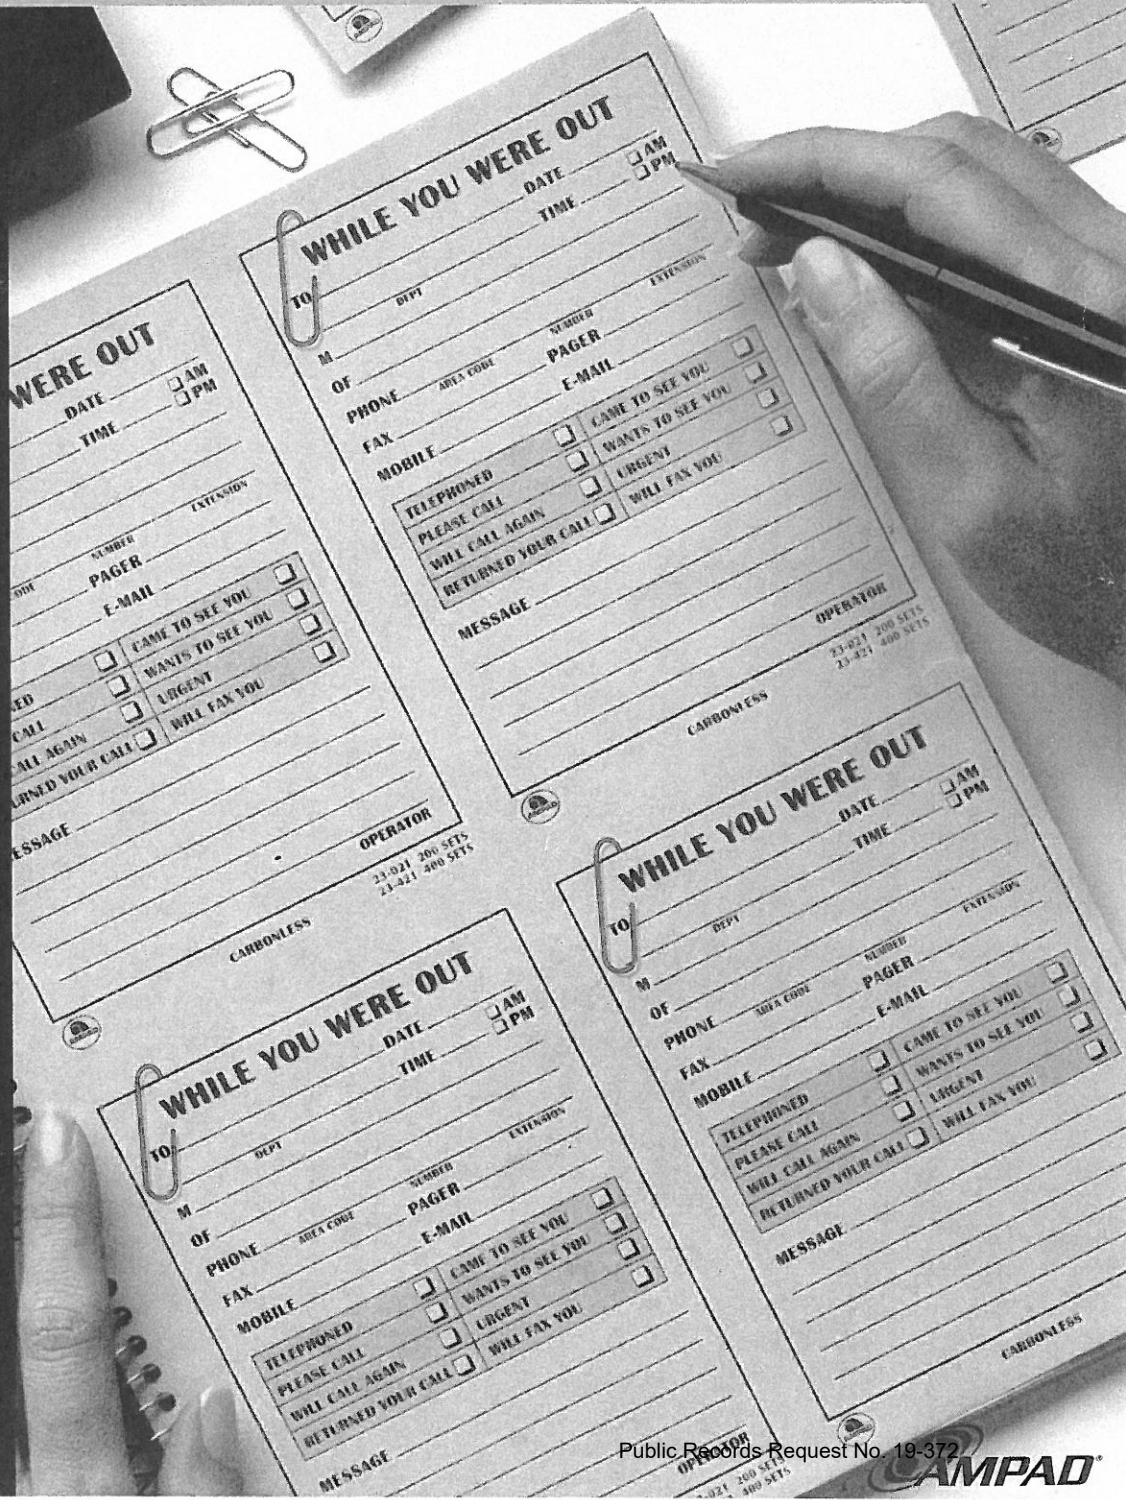 WHILE YOU WERE OUT
DATE AM
TO TIME PM
DEPT
M
OF EXTENSION
PHONE AREA CODE NUMBER
FAX PAGER
MOBILE E-MAIL
TELEPHONED CAME TO SEE YOU
PLEASE CALL WANTS TO SEE YOU
WILL CALL AGAIN URGENT
RETURNED YOUR CALL WILL FAX YOU
MESSAGE
OPERATOR
23-021 200 SETS
23-421 400 SETS
CARBONLESS
AMPAD
WERE OUT
DATE AM
TIME PM
EXTENSION
ODE NUMBER
PAGER
E-MAIL
ED CAME TO SEE YOU
CALL WANTS TO SEE YOU
ALL AGAIN URGENT
URNED YOUR CALL WILL FAX YOU
ESSAGE
OPERATOR
23-021 200 SETS
23-421 400 SETS
CARBONLESS
AMPAD
WHILE YOU WERE OUT
DATE AM
TO TIME PM
DEPT
M
OF EXTENSION
PHONE AREA CODE NUMBER
FAX PAGER
MOBILE E-MAIL
TELEPHONED CAME TO SEE YOU
PLEASE CALL WANTS TO SEE YOU
WILL CALL AGAIN URGENT
RETURNED YOUR CALL WILL FAX YOU
MESSAGE
CARBONLESS
WHILE YOU WERE OUT
DATE AM
TO TIME PM
DEPT
M
OF EXTENSION
PHONE AREA CODE NUMBER
FAX PAGER
MOBILE E-MAIL
TELEPHONED CAME TO SEE YOU
PLEASE CALL WANTS TO SEE YOU
WILL CALL AGAIN URGENT
RETURNED YOUR CALL WILL FAX YOU
MESSAGE
OPERATOR
-021 200 SETS
400 SETS
Public Records Request No. 19-372
AMPAD®